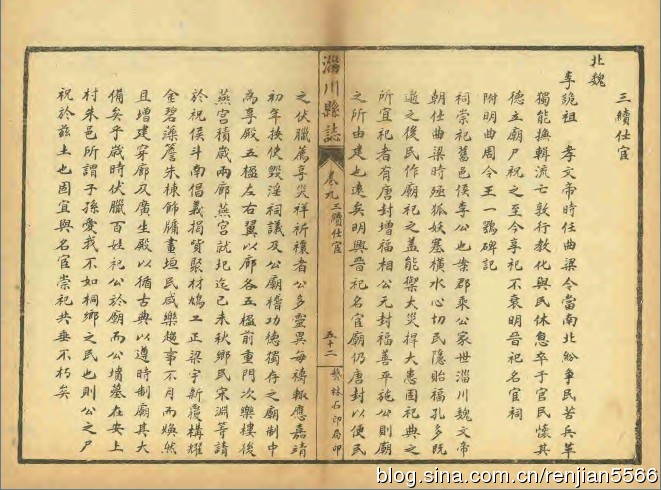 三續仕宦
北魏
李詭祖　孝文帝時任曲梁令當南北紛爭民苦兵革
獨能撫輯流亡敦行教化與民休息卒于官民懷其
德立廟尸祝之至今享祀不衰明晉祀名宦祠
附明曲周令王一鶚碑記
祠崇祀舊邑侯李公也案郡乘公家世淄川魏文帝
朝仕曲梁時殛狐妖塞橫水心切民隱貽福孔多既
逝之後民作廟祀之蓋能禦大災捍大患固祀典之
所宜祀者有唐封增福相公元封福善平施公則廟
之所由建也遠矣明興晉祀名宦廟仍唐封以便民
淄川縣誌
卷九 三續仕宦
五十二
藝林石印局印
之伏臘薦享災祥祈禳者公多靈異每禱輒應嘉靖
初年按使毀淫祠議及公廟稽功德獨存之廟制中
為享殿五楹左右翼以廊各五楹前重門次樂樓後
燕宮積歲兩廊燕宮就圯迄己未秋鄉民宋淵等請
於祝侯斗南倡義捐貲聚材鳩工正梁宇新覆構耀
金碧藻簷朱棟飾牖畫垣民咸樂趨事不月而煥然
且增建穿廊及廣生殿以循古典以遵時制廟其大
備矣乎歲時伏臘百姓祀公於廟而公墳墓在安上
村朱邑所謂子孫愛我不如桐鄉之民也則公之尸
祝於茲土也固宜與名宦崇祀共垂不朽矣
blog.sina.com.cn/renjian5566